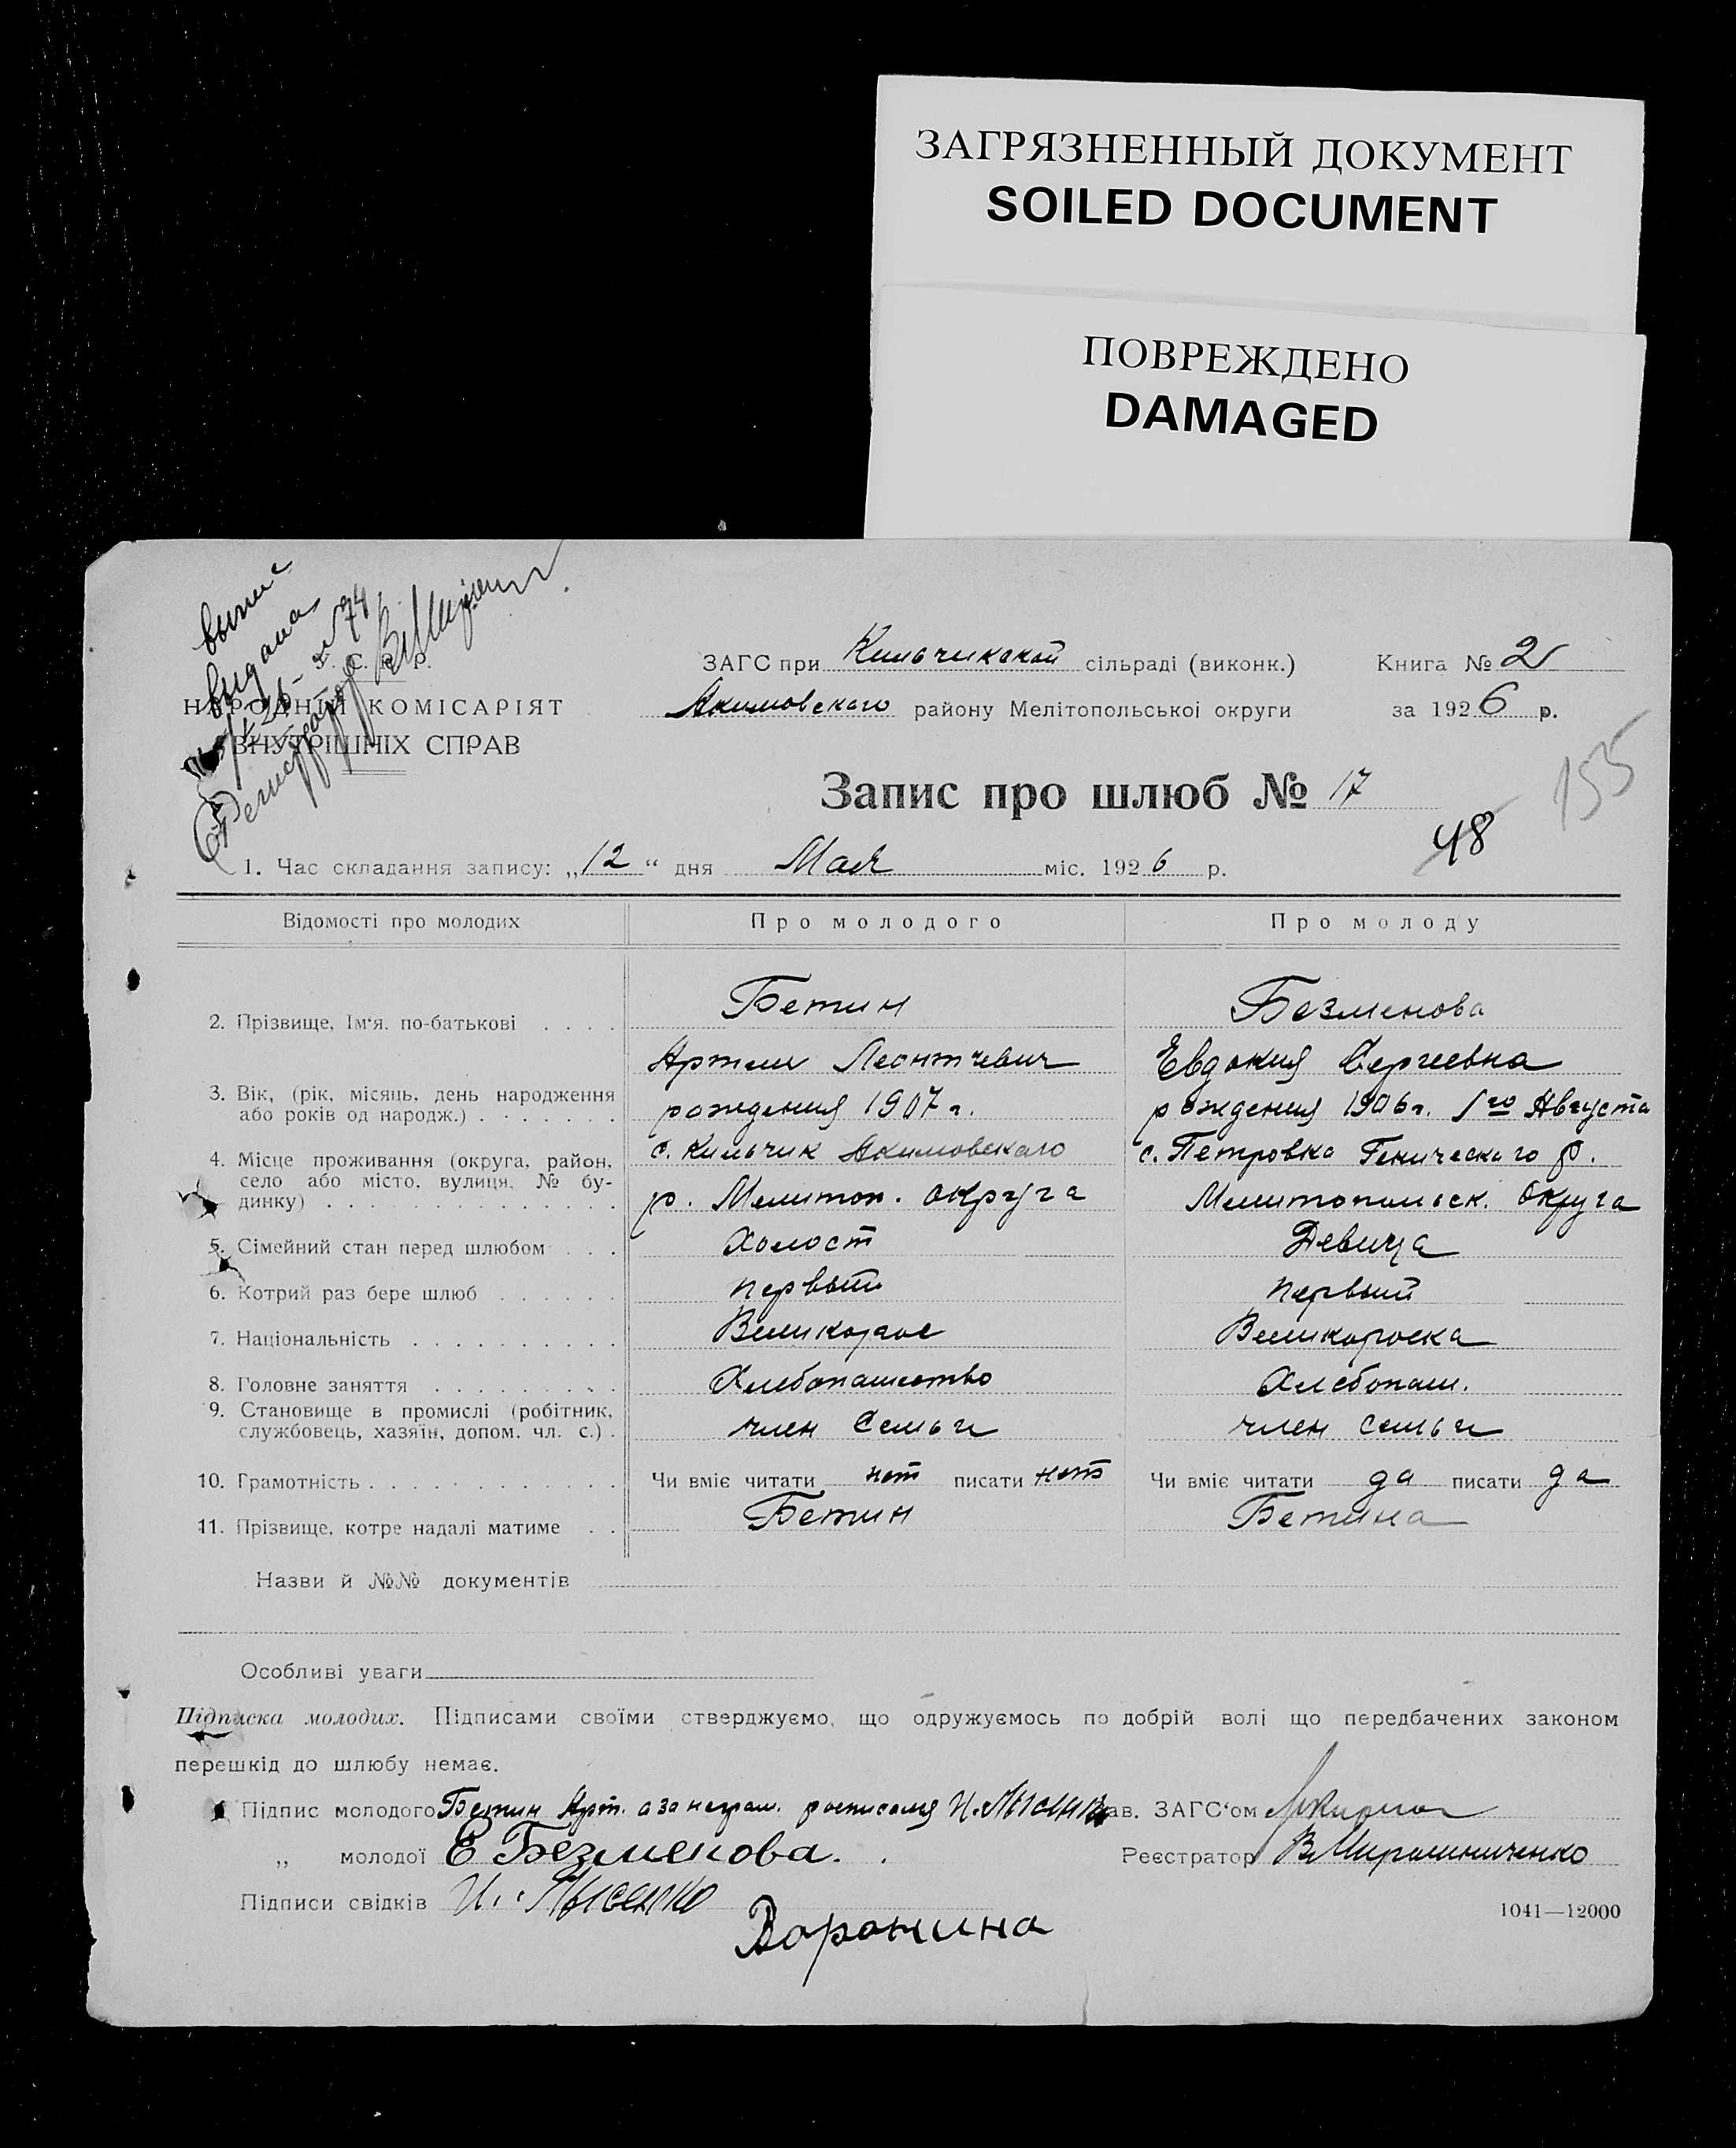 ЗАГРЯЗНЕННЫЙ ДОКУМЕНТ
SOILED DOCUMENT
ПОВРЕЖДЕНО
DAMAGED
выпис
выдана
Регистратор
У. С. Р. Р.
НАРОДНІЙ КОМІСАРІЯТ
ВНУТРІШНІХ СПРАВ
ЗАГС при Кильчикской сільраді (виконк.) Книга № 2
Акимовского району Мелітопольської округи за 1926 р.
155
Запис про шлюб № 17
48
1. Час складання запису: „12“ дня Мая міс. 1926 р.
Відомості про молодих Про молодого Про молоду
2. Прізвище, Ім'я, по-батькові . . . . Бетин Безменова
Артем Леонтчевич Евдокия Сергеевна
3. Вік, (рік, місяць, день народження
або років од народж.) . . . . . . рождения 1907 г. рождения 1906 г. 1го Августа
4. Місце проживання (округа, район,
село або місто, вулиця, № бу-
динку) . . . . . . . . . . . . . .
с. Кильчик Акимовского с. Петровка Генического р.
р. Мелитоп. округа Мелитопольск. округа
5. Сімейний стан перед шлюбом . . . Холост Девица
6. Котрий раз бере шлюб . . . . . . первый первый
7. Національність . . . . . . . . . . Великорос Великороска
8. Головне заняття . . . . . . . . . Хлебопашество Хлебопаш.
9. Становище в промислі (робітник,
службовець, хазяїн, допом. чл. с.) . член семьи член семьи
10. Грамотність . . . . . . . . . . . . Чи вміє читати нет писати нет Чи вміє читати да писати да
11. Прізвище, котре надалі матиме . . Бетин Бетина
Назви й №№ документів
Особливі уваги
Підписка молодих. Підписами своїми стверджуємо, що одружуємось по добрій волі що передбачених законом
перешкід до шлюбу немає.
Підпис молодого Бетин Арт. а за неграм. росписался И. Лысенко Зав. ЗАГС'ом
„ молодої Е Безменова. Реєстратор В Мирошниченко
Підписи свідків И. Лысенко
Воронина
1041—12000